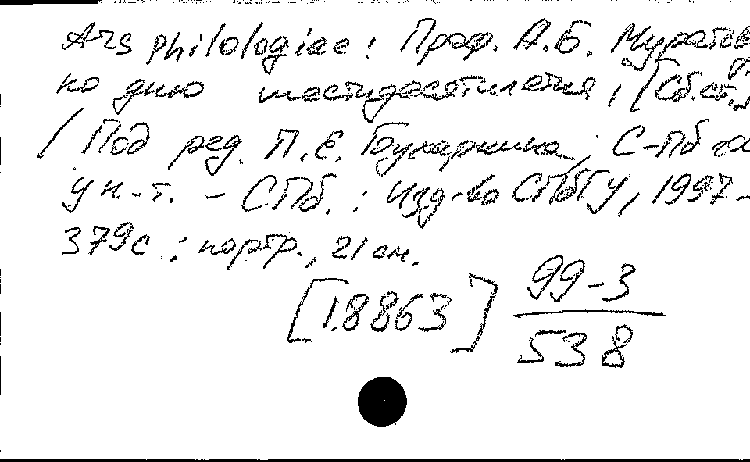 Ars philologiae: Проф. А.Б. Муратову
ко дню шестидесятилетия, [Сб.ст.]
/ Под ред. П.Е. Бухаркина; С-Пб гос
ун-т. - СПб.: Изд-во СПбГУ, 1997-
379с : портр., 21см.
[1.8863] 99-3
538